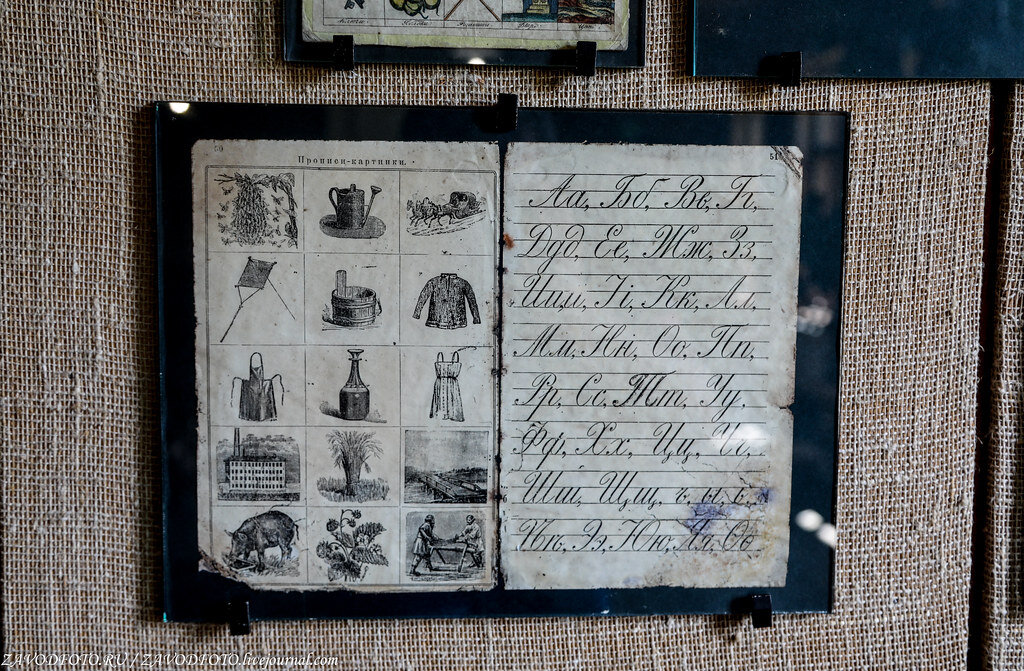 50
Прописи-картинки.
51
Аа, Бб, Вв, Гг,
Ддд, Ее, Жж, Зз,
Иии, Іі, Кк, Лл,
Мм, Нн, Оо, Пп,
Рр, Сс, Тт, Уу,
Фф, Хх, Цц, Чч,
Шш, Щщ, ъ, ы, ь,
Ѣѣ, Ээ, Юю, Яя, Ѳѳ.
ZAVODFOTO.RU / ZAVODFOTO.livejournal.com